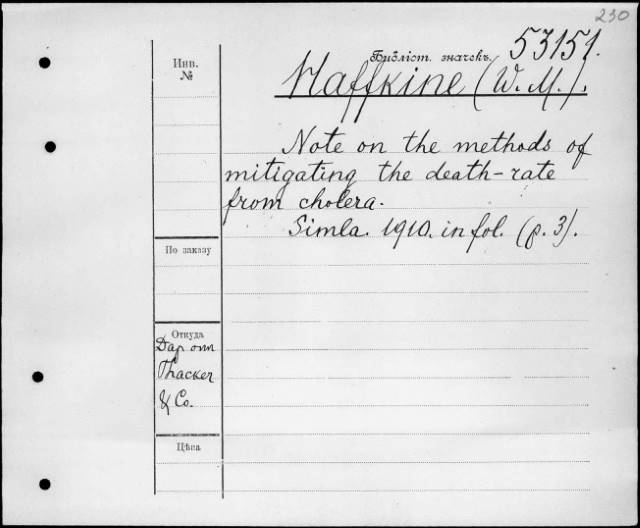 230
53151.
Инв.
№
Библіот. значекъ
Haffkine (W. M.).
Note on the methods of
mitigating the death-rate
from cholera.
Simla. 1910. in fol. (p. 3).
По заказу
Откуда
Дар отт
Thacker
& Co.
Цѣна